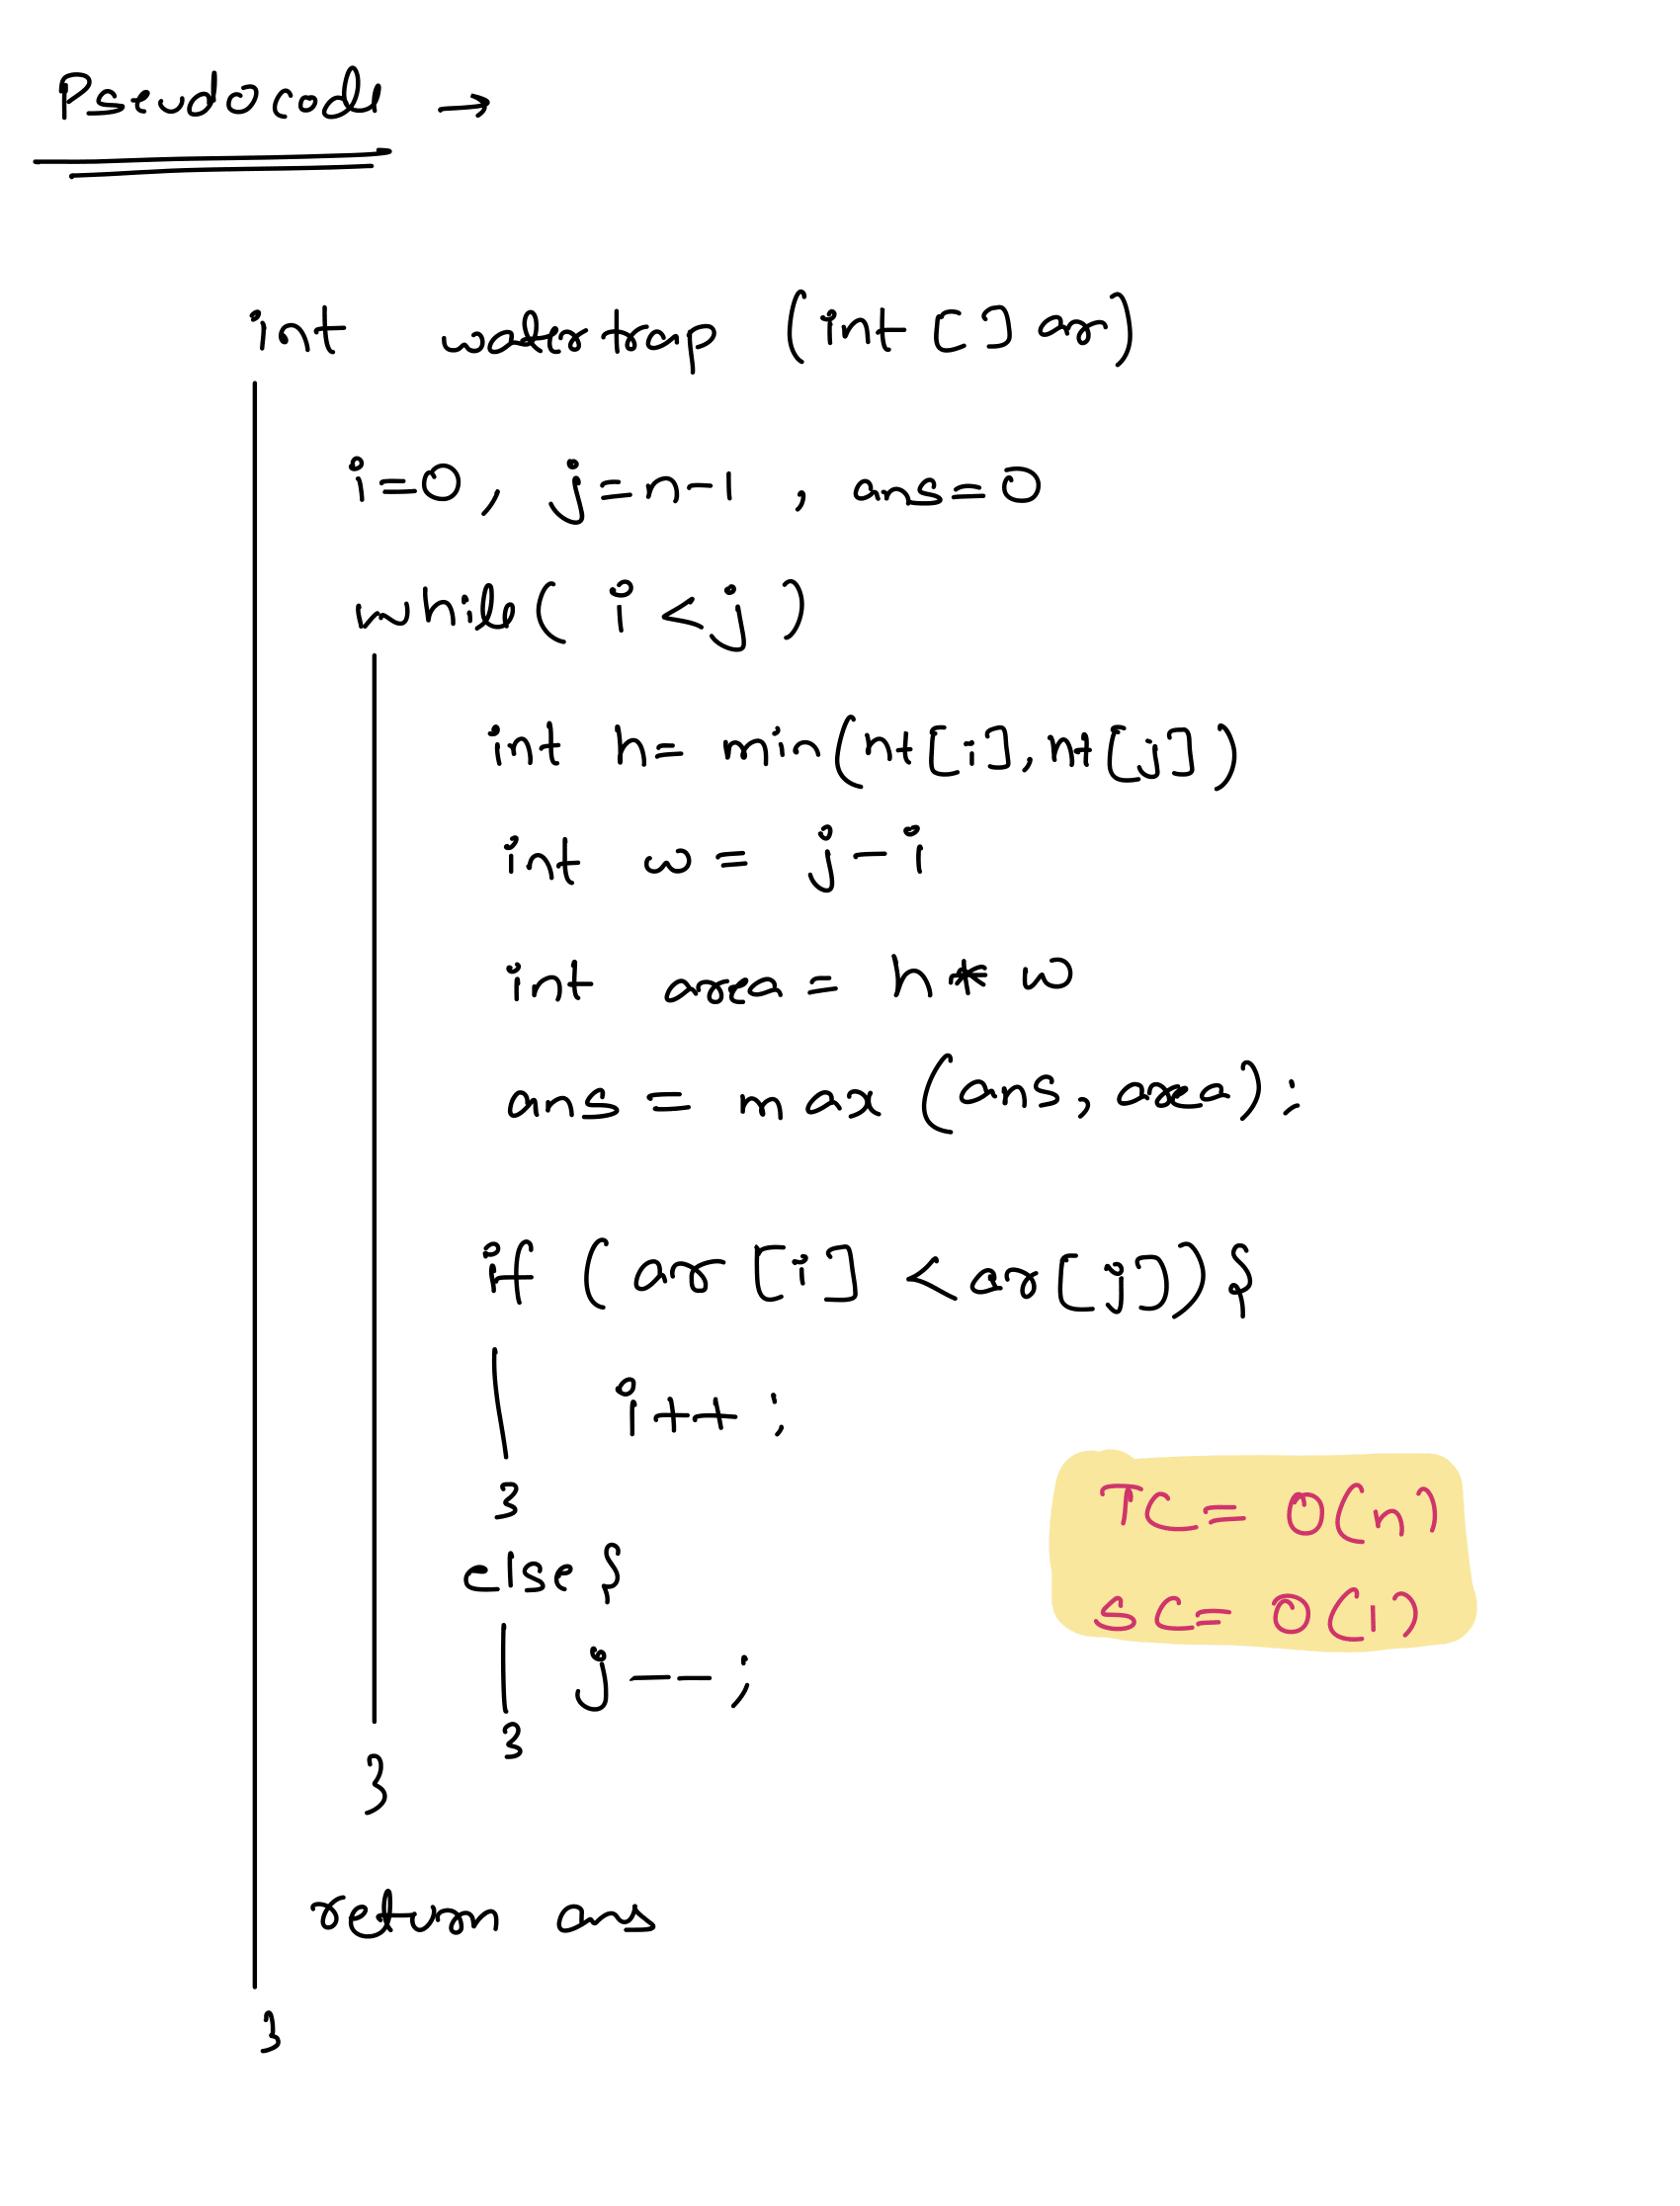 Pseudocode →
int watertrap (int [] ar)
i=0, j=n-1, ans=0
while( i<j )
int h= min(ht[i], ht[j])
int w= j-i
int area= h* w
ans = max (ans, area);
if (ar [i] <ar[j]){
i++;
}
else {
j--;
}
}
return ans
}
TC= O(n)
SC= O(1)